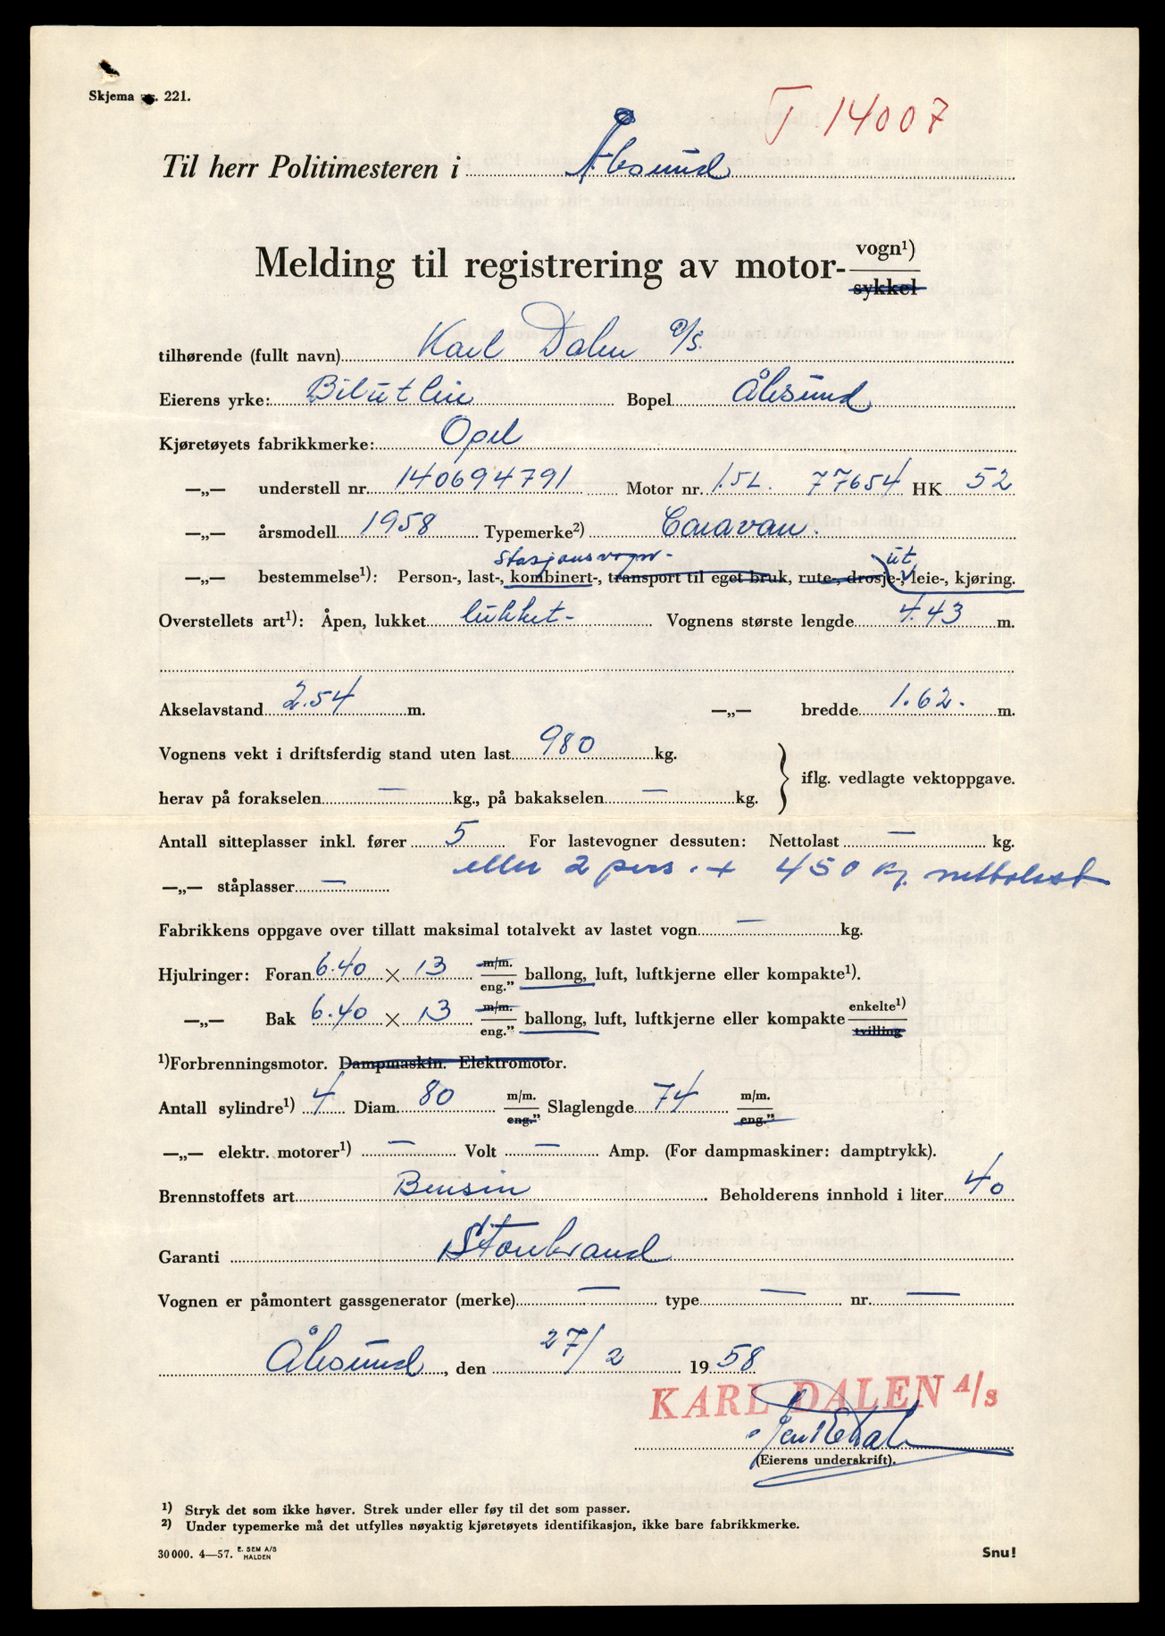 Skjema nr. 221.
T 14007
Til herr Politimesteren i Ålesund
Melding til registrering av motor- vogn¹) sykkel
tilhørende (fullt navn) Karl Dalen A/S.
Eierens yrke: Bilutleie Bopel Ålesund
Kjøretøyets fabrikkmerke: Opel
—„— understell nr. 140694791 Motor nr. 1.5L. 77654 HK 52
—„— årsmodell 1958 Typemerke²) Caravan.
Stasjonsvogn- ut
—„— bestemmelse¹): Person-, last-, kombinert-, transport til eget bruk, rute-, drosje-, leie-, kjøring.
Overstellets art¹): Åpen, lukket lukket- Vognens største lengde 4.43 m.
Akselavstand 2.54 m. —„— bredde 1.62- m.
Vognens vekt i driftsferdig stand uten last 980 kg.
iflg. vedlagte vektoppgave.
herav på forakselen — kg., på bakakselen — kg.
Antall sitteplasser inkl. fører 5 For lastevogner dessuten: Nettolast — kg.
eller 2 pers. + 450 kg. nettolast
—„— ståplasser —
Fabrikkens oppgave over tillatt maksimal totalvekt av lastet vogn — kg.
Hjulringer: Foran 6.40 × 13 m/m. eng." ballong, luft, luftkjerne eller kompakte¹).
—„— Bak 6.40 × 13 m/m. eng." ballong, luft, luftkjerne eller kompakte enkelte¹) tvilling
¹)Forbrenningsmotor. Dampmaskin. Elektromotor.
Antall sylindre¹) 4 Diam. 80 m/m. eng." Slaglengde 74 m/m. eng."
—„— elektr. motorer¹) — Volt — Amp. (For dampmaskiner: damptrykk).
Brennstoffets art Bensin Beholderens innhold i liter 40
Garanti Storebrand
Vognen er påmontert gassgenerator (merke) — type — nr. —
Ålesund, den 27/2 1958
KARL DALEN A/S
(Eierens underskrift).
¹) Stryk det som ikke høver. Strek under eller føy til det som passer.
²) Under typemerke må det utfylles nøyaktig kjøretøyets identifikasjon, ikke bare fabrikkmerke.
30 000. 4—57. E. SEM A/S HALDEN
Snu!